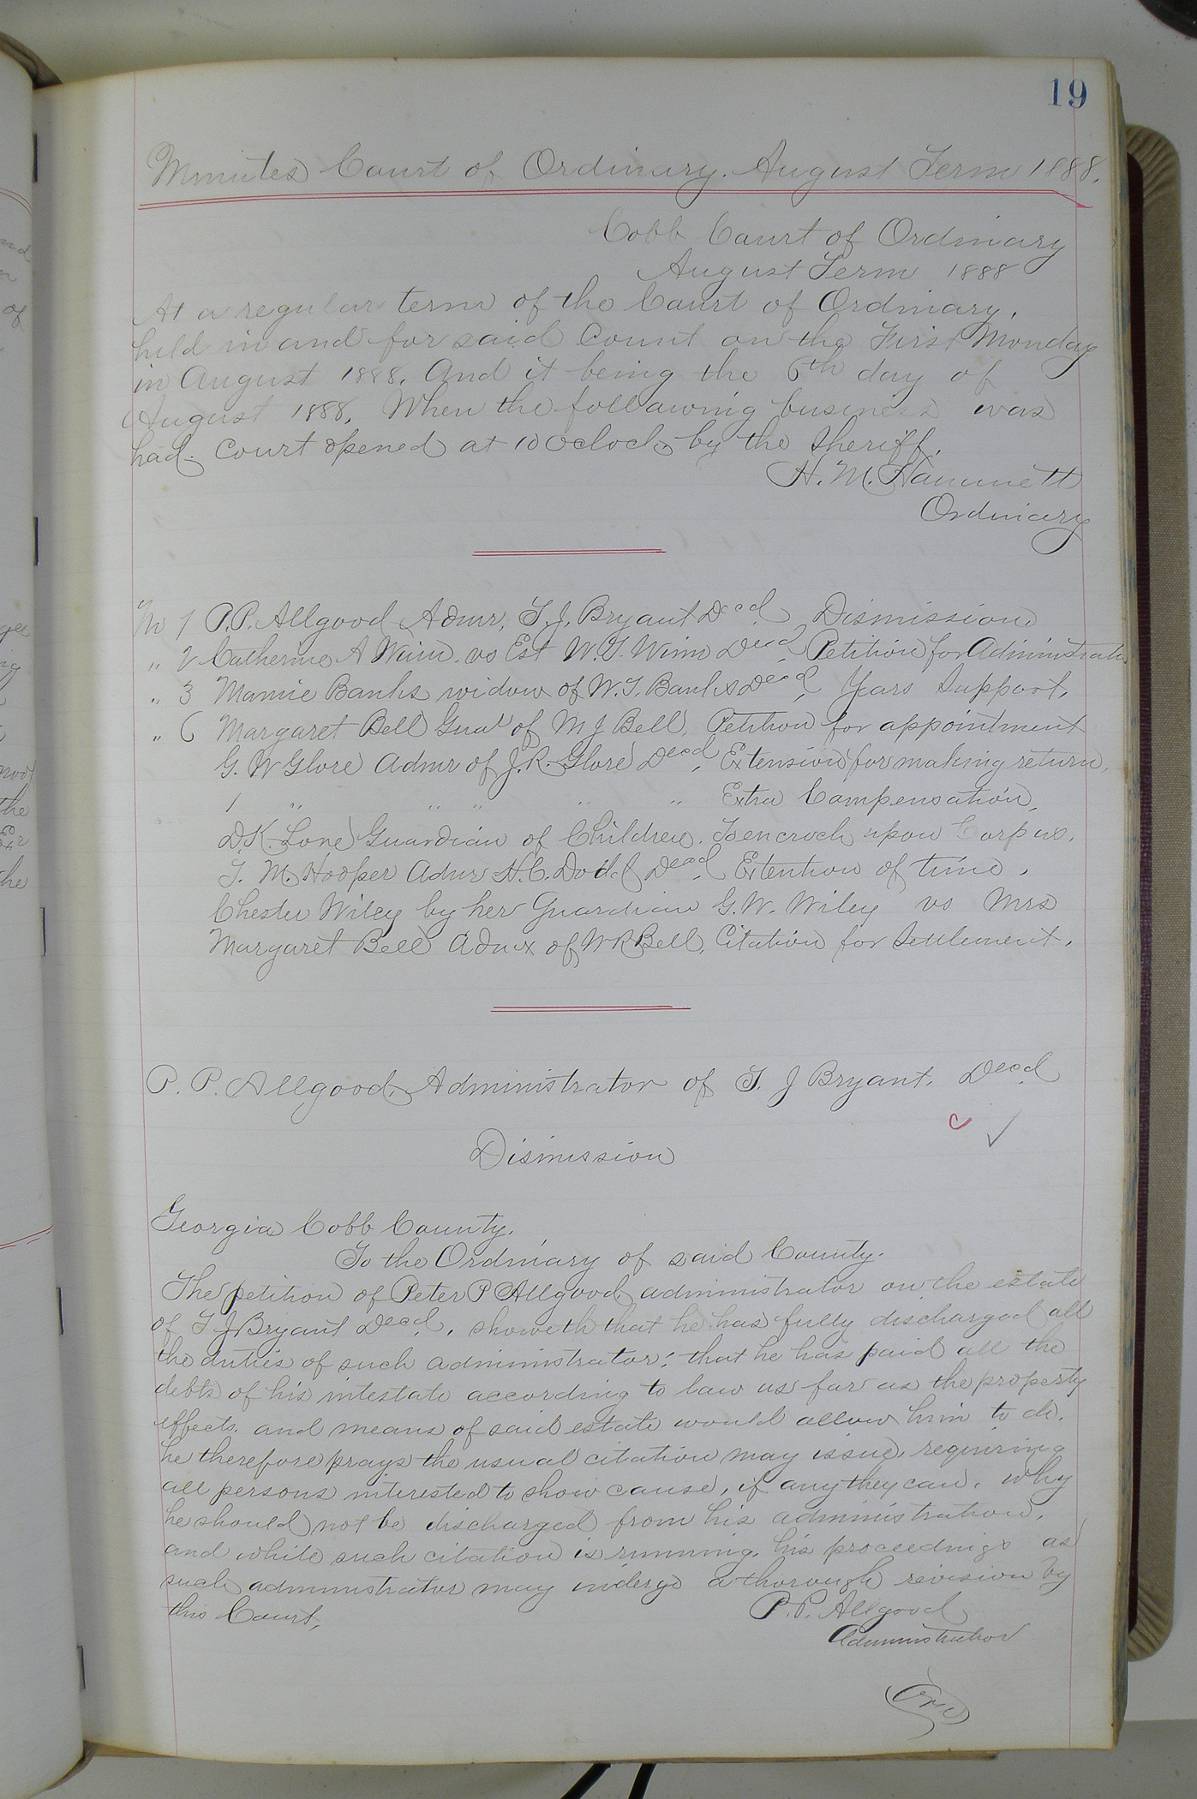 19
Minutes Court of Ordinary. August Term 1888.
Cobb Court of Ordinary
August Term 1888
At a regular term of the Court of Ordinary,
held in and for said Count on the First Monday
in August 1888. And it being the 6th day of
August 1888, When the following business was
had. Court opened at 10 Oclock by the Sheriff.
H. M. Hammett
Ordinary
No 1 P.P. Allgood Admr, T.J. Bryant Decd Dismission
" 2 Catherine A Winn vs Est W.T. Winn Decd Petition for Administratn
" 3 Mamie Banks widow of W.T. Banks Decd Years Support,
" 6 Margaret Bell Guar of M J Bell, Petition for appointment
G. W Glore Admr of J.R. Glore Decd, Extension for making return,
" " " " " Extra Compensation,
D.K. Lone Guardian of Children. To encroch upon Corpus.
T. M. Hooper Admr H.C. Dodd Decd Extention of time,
Chester Wiley by her Guardian G.W. Wiley vs Mrs
Margaret Bell Admx of W R Bell, Citation for Settlement.
P. P. Allgood, Administrator of T. J Bryant, Decd
Dismission
Georgia Cobb County.
To the Ordinary of said County.
The petition of Peter P Allgood administrator on the estate
of T J Bryant Decd, showeth that he has fully discharged all
the duties of such administrator: that he has paid all the
debts of his intestate according to law as far as the property
effects, and means of said estate would allow him to do.
he therefore prays the usual citation may issue, requiring
all persons interested to show cause, if any they can, why
he should not be discharged from his administration,
and while such citation is running, his proceedings as
such administrator may undergo a thorough revision by
this Court,
P.P. Allgood
Administrator